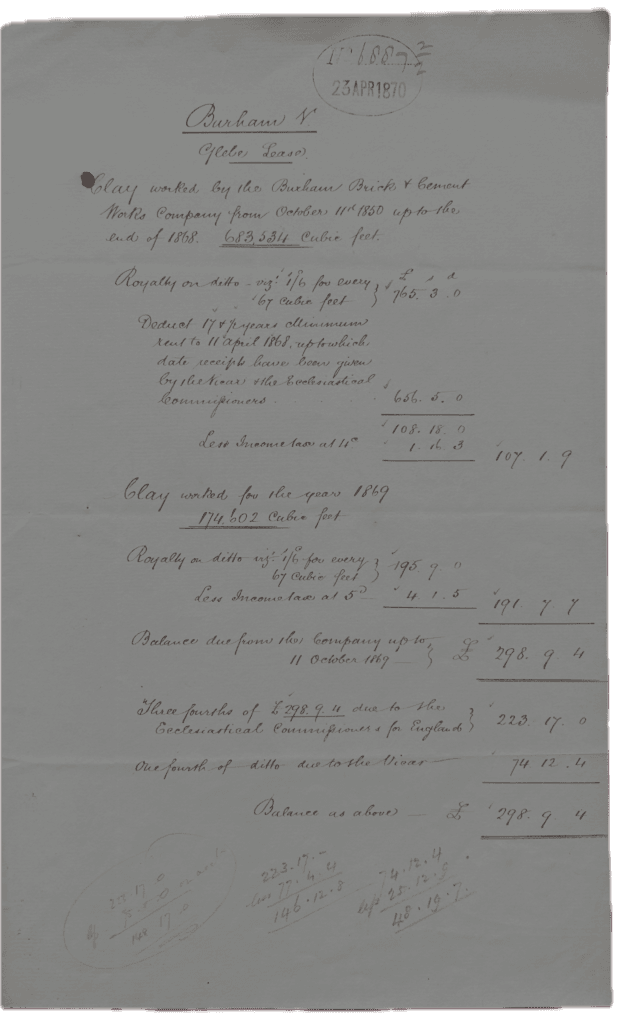 23 APR 1870
Burham V
Glebe Lease.
Clay worked by the Burham Brick & Cement
Works Company from October 11th 1850 up to the
end of 1868. 683,534 Cubic feet.
£ s d
Royalty on ditto viz: 1/6 for every
67 cubic feet } 765. 3. 0
Deduct 17 1/2 years Minimum
rent to 11 April 1868, up to which
date receipts have been given
by the Vicar & the Ecclesiastical
Commissioners . . 656. 5. 0
108. 18. 0
Less Income tax at 4d 1. 16. 3 107. 1. 9
Clay worked for the year 1869
174,602 Cubic feet
Royalty on ditto viz: 1/6 for every
67 cubic feet } 195. 9. 0
Less Income tax at 5d 4. 1. 5 191. 7. 7
Balance due from the Company up to
11 October 1869 } £ 298. 9. 4
Three fourths of £298. 9. 4 due to the
Ecclesiastical Commissioners for England } 223. 17. 0
One fourth of ditto due to the Vicar 74. 12. 4
Balance as above £ 298. 9. 4
223. 17. -
less 77. 4. 4
146. 12. 8
74. 12. 4
25. 12. 9
48. 19. 7